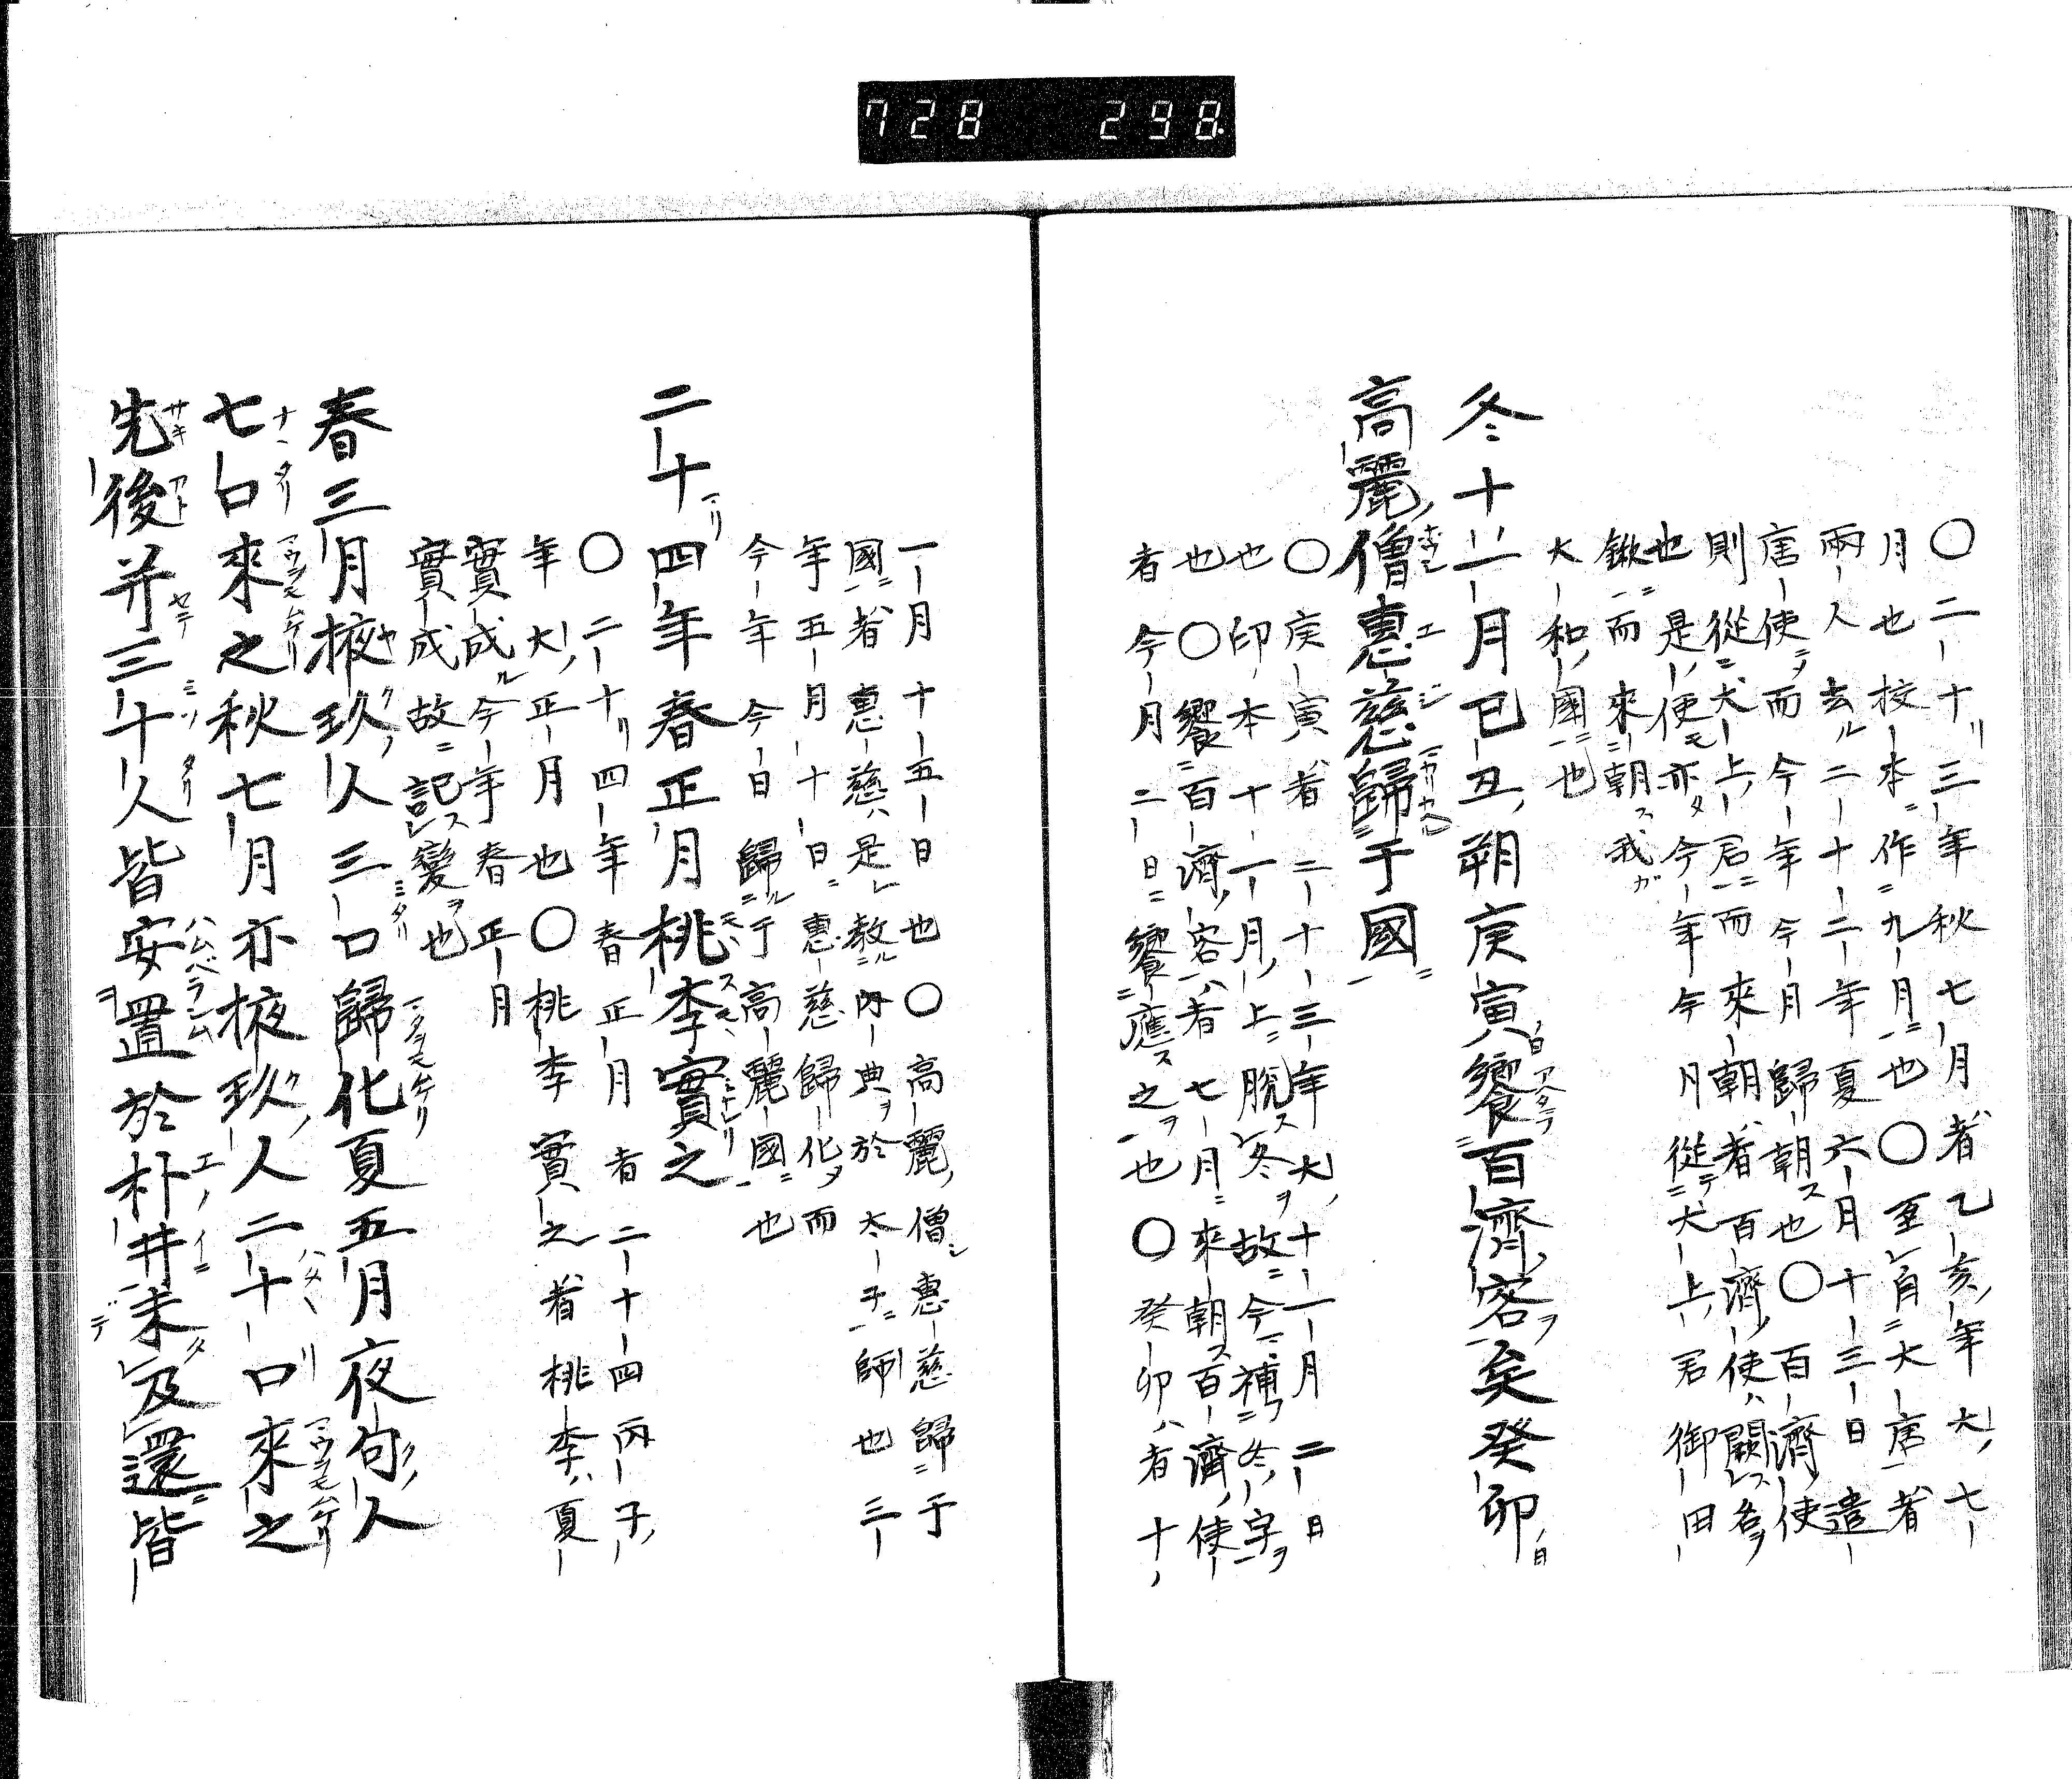 728 298
〇二十三年秋七月者乙亥年大七
月也校本作九月也〇至自大唐者
兩人去二十二年夏六月十三日遣
唐使而今年今月歸朝也〇百濟使
則從犬上君而來朝者百濟使闕名
也是使亦今年今月從犬上君御田
鍬而來朝我
大和國也
冬十一月己丑朔庚寅饗百濟客矣癸卯
高麗僧惠慈歸于國
〇庚寅者二十三年大十一月二日
也印本十一月上脫冬故今補冬字
也〇饗百濟客者七月來朝百濟使
者今月二日饗應之也〇癸卯者十
一月十五日也〇高麗僧惠慈歸于
國者惠慈是教內典於太子師也三
年五月十日惠慈歸化而
今年今日歸于高麗國也
二十四年春正月桃李實之
〇二十四年春正月者二十四丙子
年大正月也〇桃李實之者桃李夏
實成今年春正月
實成故記變也
春三月掖玖人三口歸化夏五月夜句人
七口來之秋七月亦掖玖人二十口來之
先後并三十人皆安置於朴井未及還皆